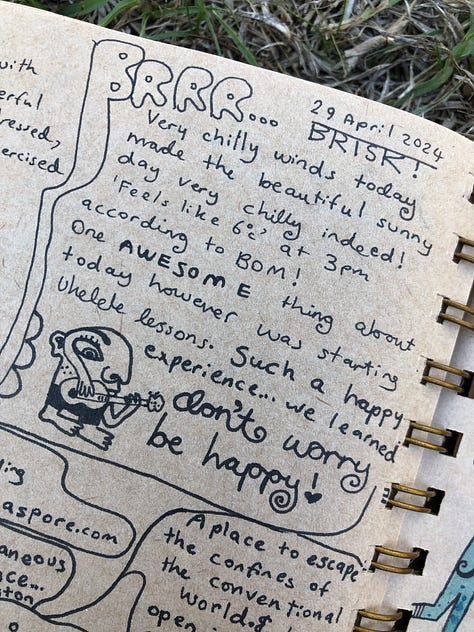 with
erful
ressed,
ercised
BRRR... 29 April 2024
BRISK!
Very chilly winds today
made the beautiful sunny
day very chilly indeed!
'Feels like 6°c' at 3pm
according to BOM!
One AWESOME thing about
today however was starting
Ukelele lessons. Such a happy
experience... we learned
don't worry
be happy!
ling
aspore.com
aneous
nce...
ston
A place to escape
the confines of
the conventional
world &
open